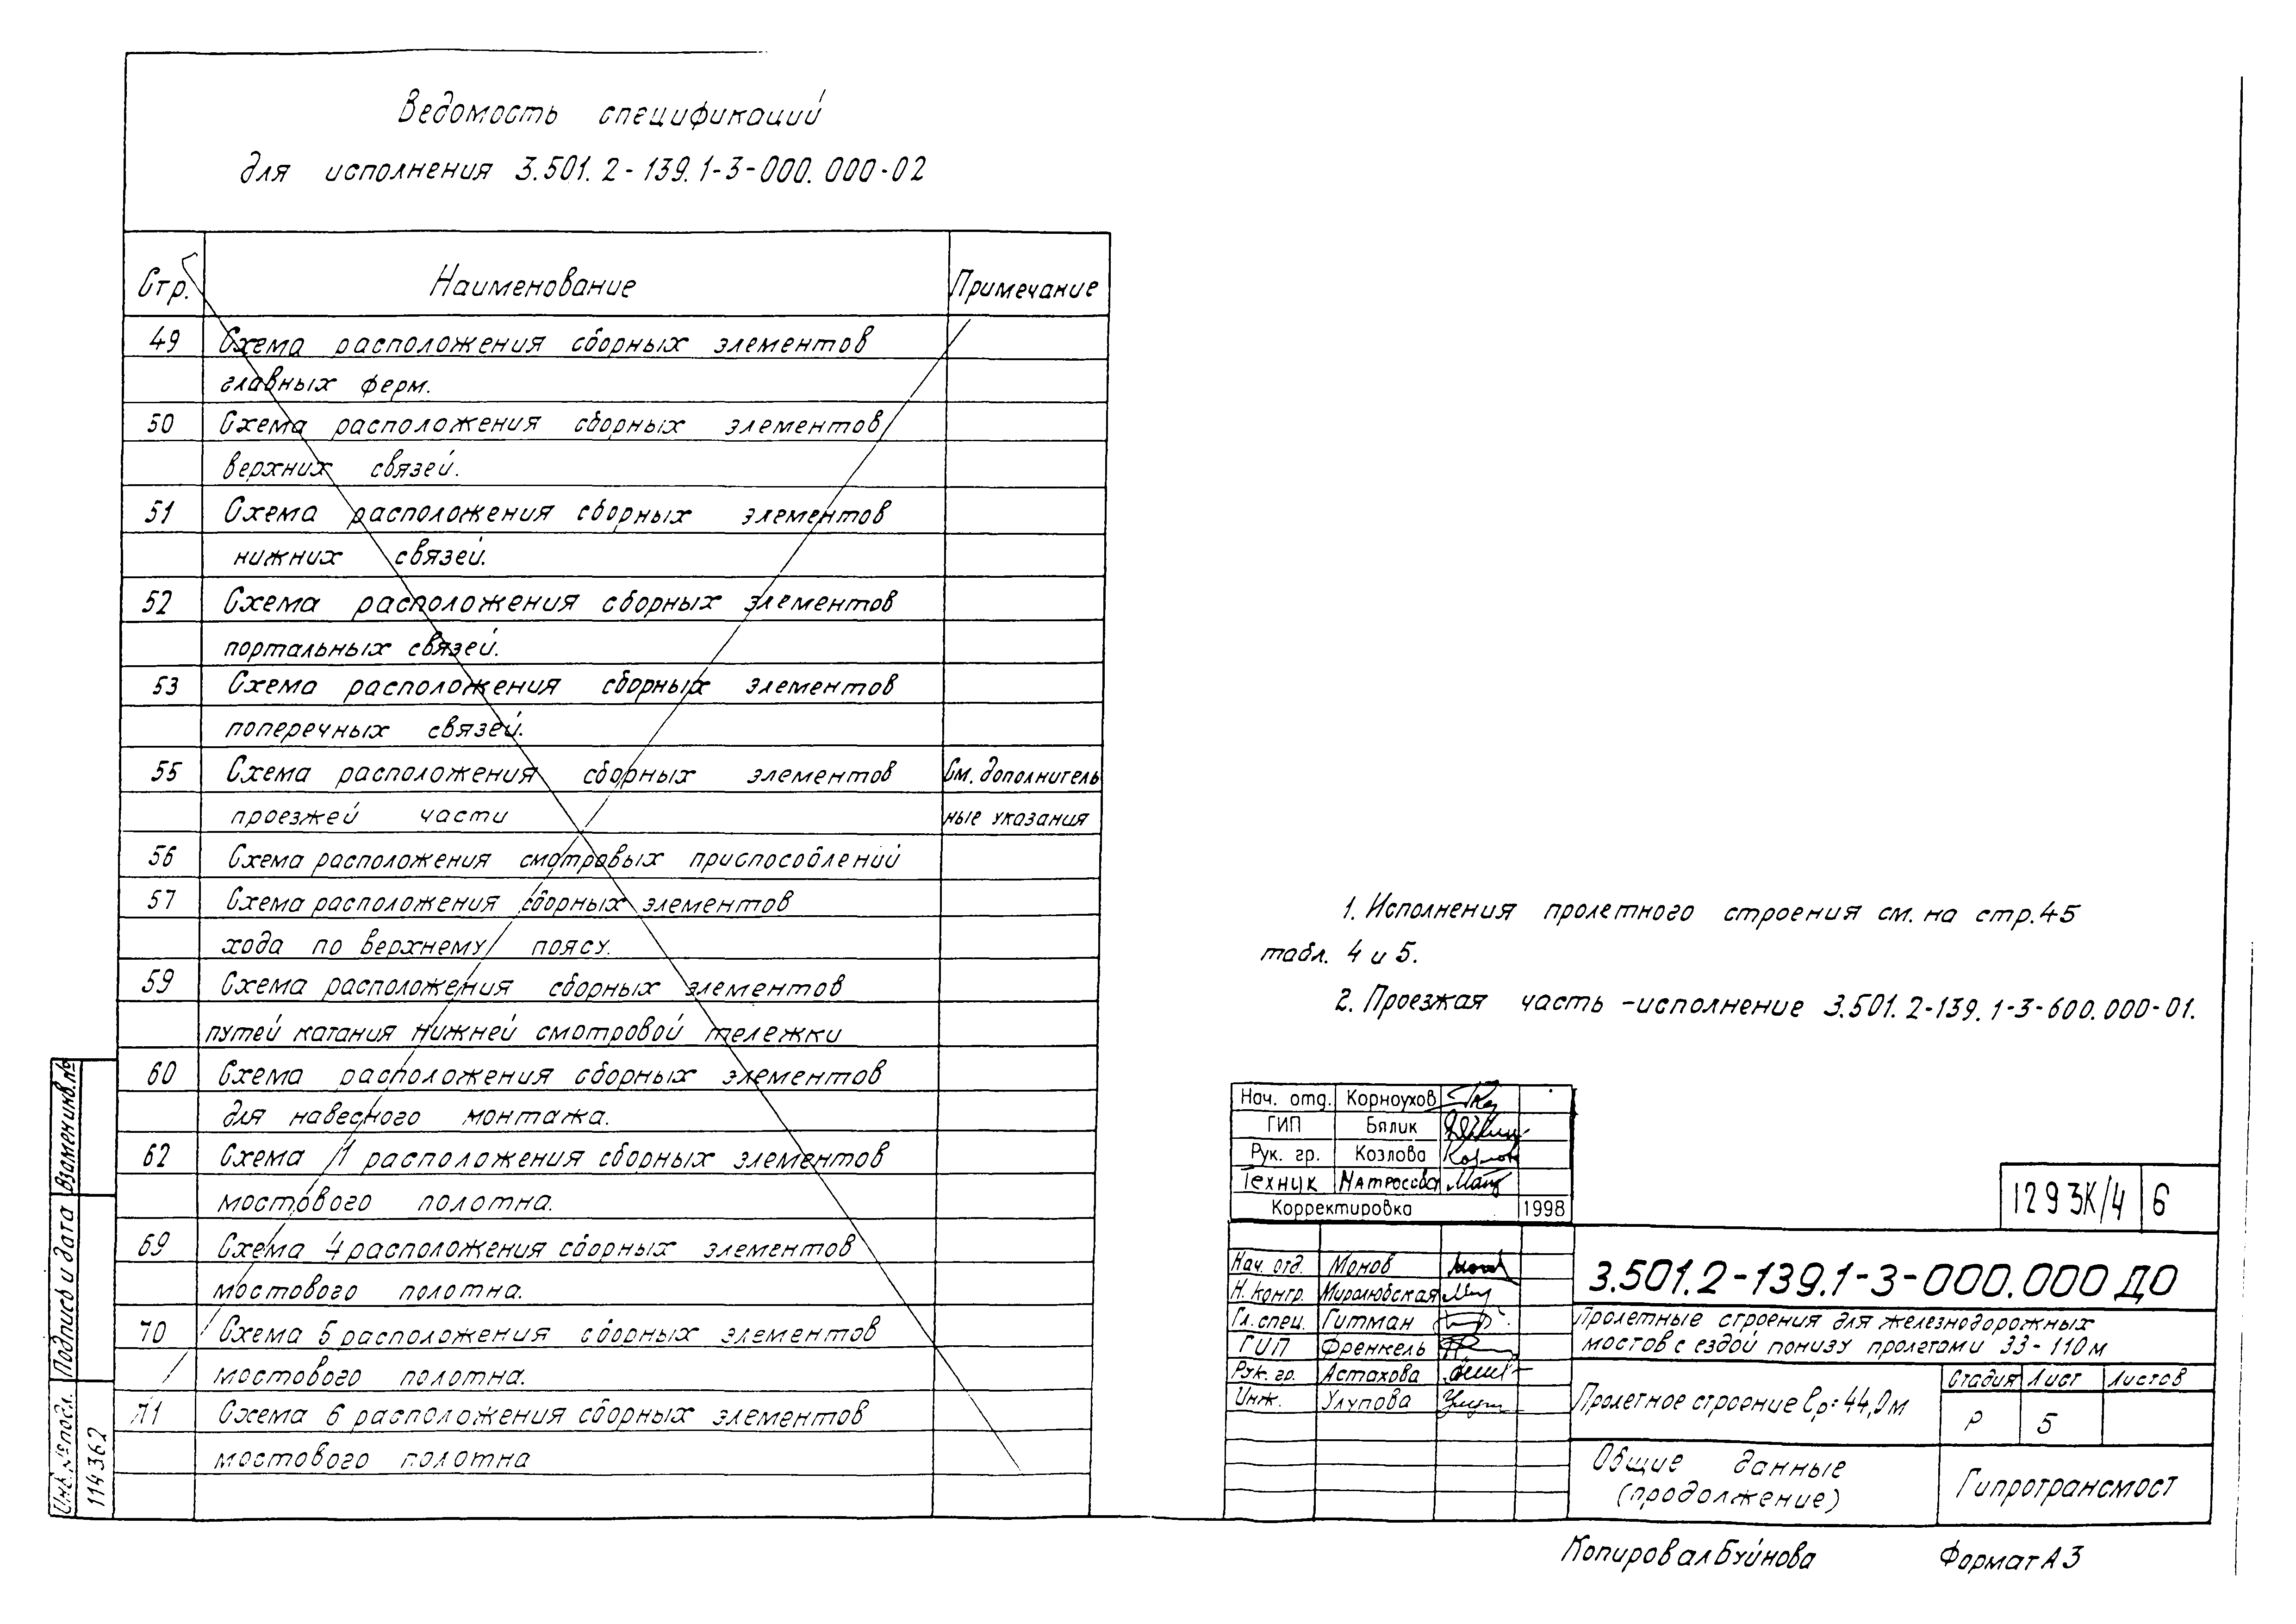 Ведомость спецификаций
для исполнения 3.501.2-139.1-3-000.000-02
Стр. Наименование Примечание
49 Схема расположения сборных элементов
главных ферм.
50 Схема расположения сборных элементов
верхних связей.
51 Схема расположения сборных элементов
нижних связей.
52 Схема расположения сборных элементов
портальных связей.
53 Схема расположения сборных элементов
поперечных связей.
55 Схема расположения сборных элементов См. дополнитель
проезжей части ные указания
56 Схема расположения смотровых приспособлений
57 Схема расположения сборных элементов
хода по верхнему поясу.
59 Схема расположения сборных элементов
путей катания нижней смотровой тележки
60 Схема расположения сборных элементов
для навесного монтажа.
62 Схема 1 расположения сборных элементов
мостового полотна.
69 Схема 4 расположения сборных элементов
мостового полотна.
70 Схема 5 расположения сборных элементов
мостового полотна.
71 Схема 6 расположения сборных элементов
мостового полотна
1. Исполнения пролетного строения см. на стр. 45
табл. 4 и 5.
2. Проезжая часть - исполнение 3.501.2-139.1-3-600.000-01.
Нач. отд. Корноухов
ГИП Бялик
Рук. гр. Козлова
Техник Матросова
Корректировка 1998
1293К/4 6
Нач. отд. Монов
Н. контр. Миролюбская
Гл. спец. Гитман
ГИП Френкель
Рук. гр. Астахова
Инж. Улупова
3.501.2-139.1-3-000.000 ДО
Пролетные строения для железнодорожных
мостов с ездой понизу пролетами 33-110 м
Пролетное строение lр=44,0м
Стадия Лист Листов
Р 5
Общие данные
(продолжение)
Гипротрансмост
Копировал Буйнова Формат А3
Инв. № подл. Подпись и дата Взамен инв. №
114362